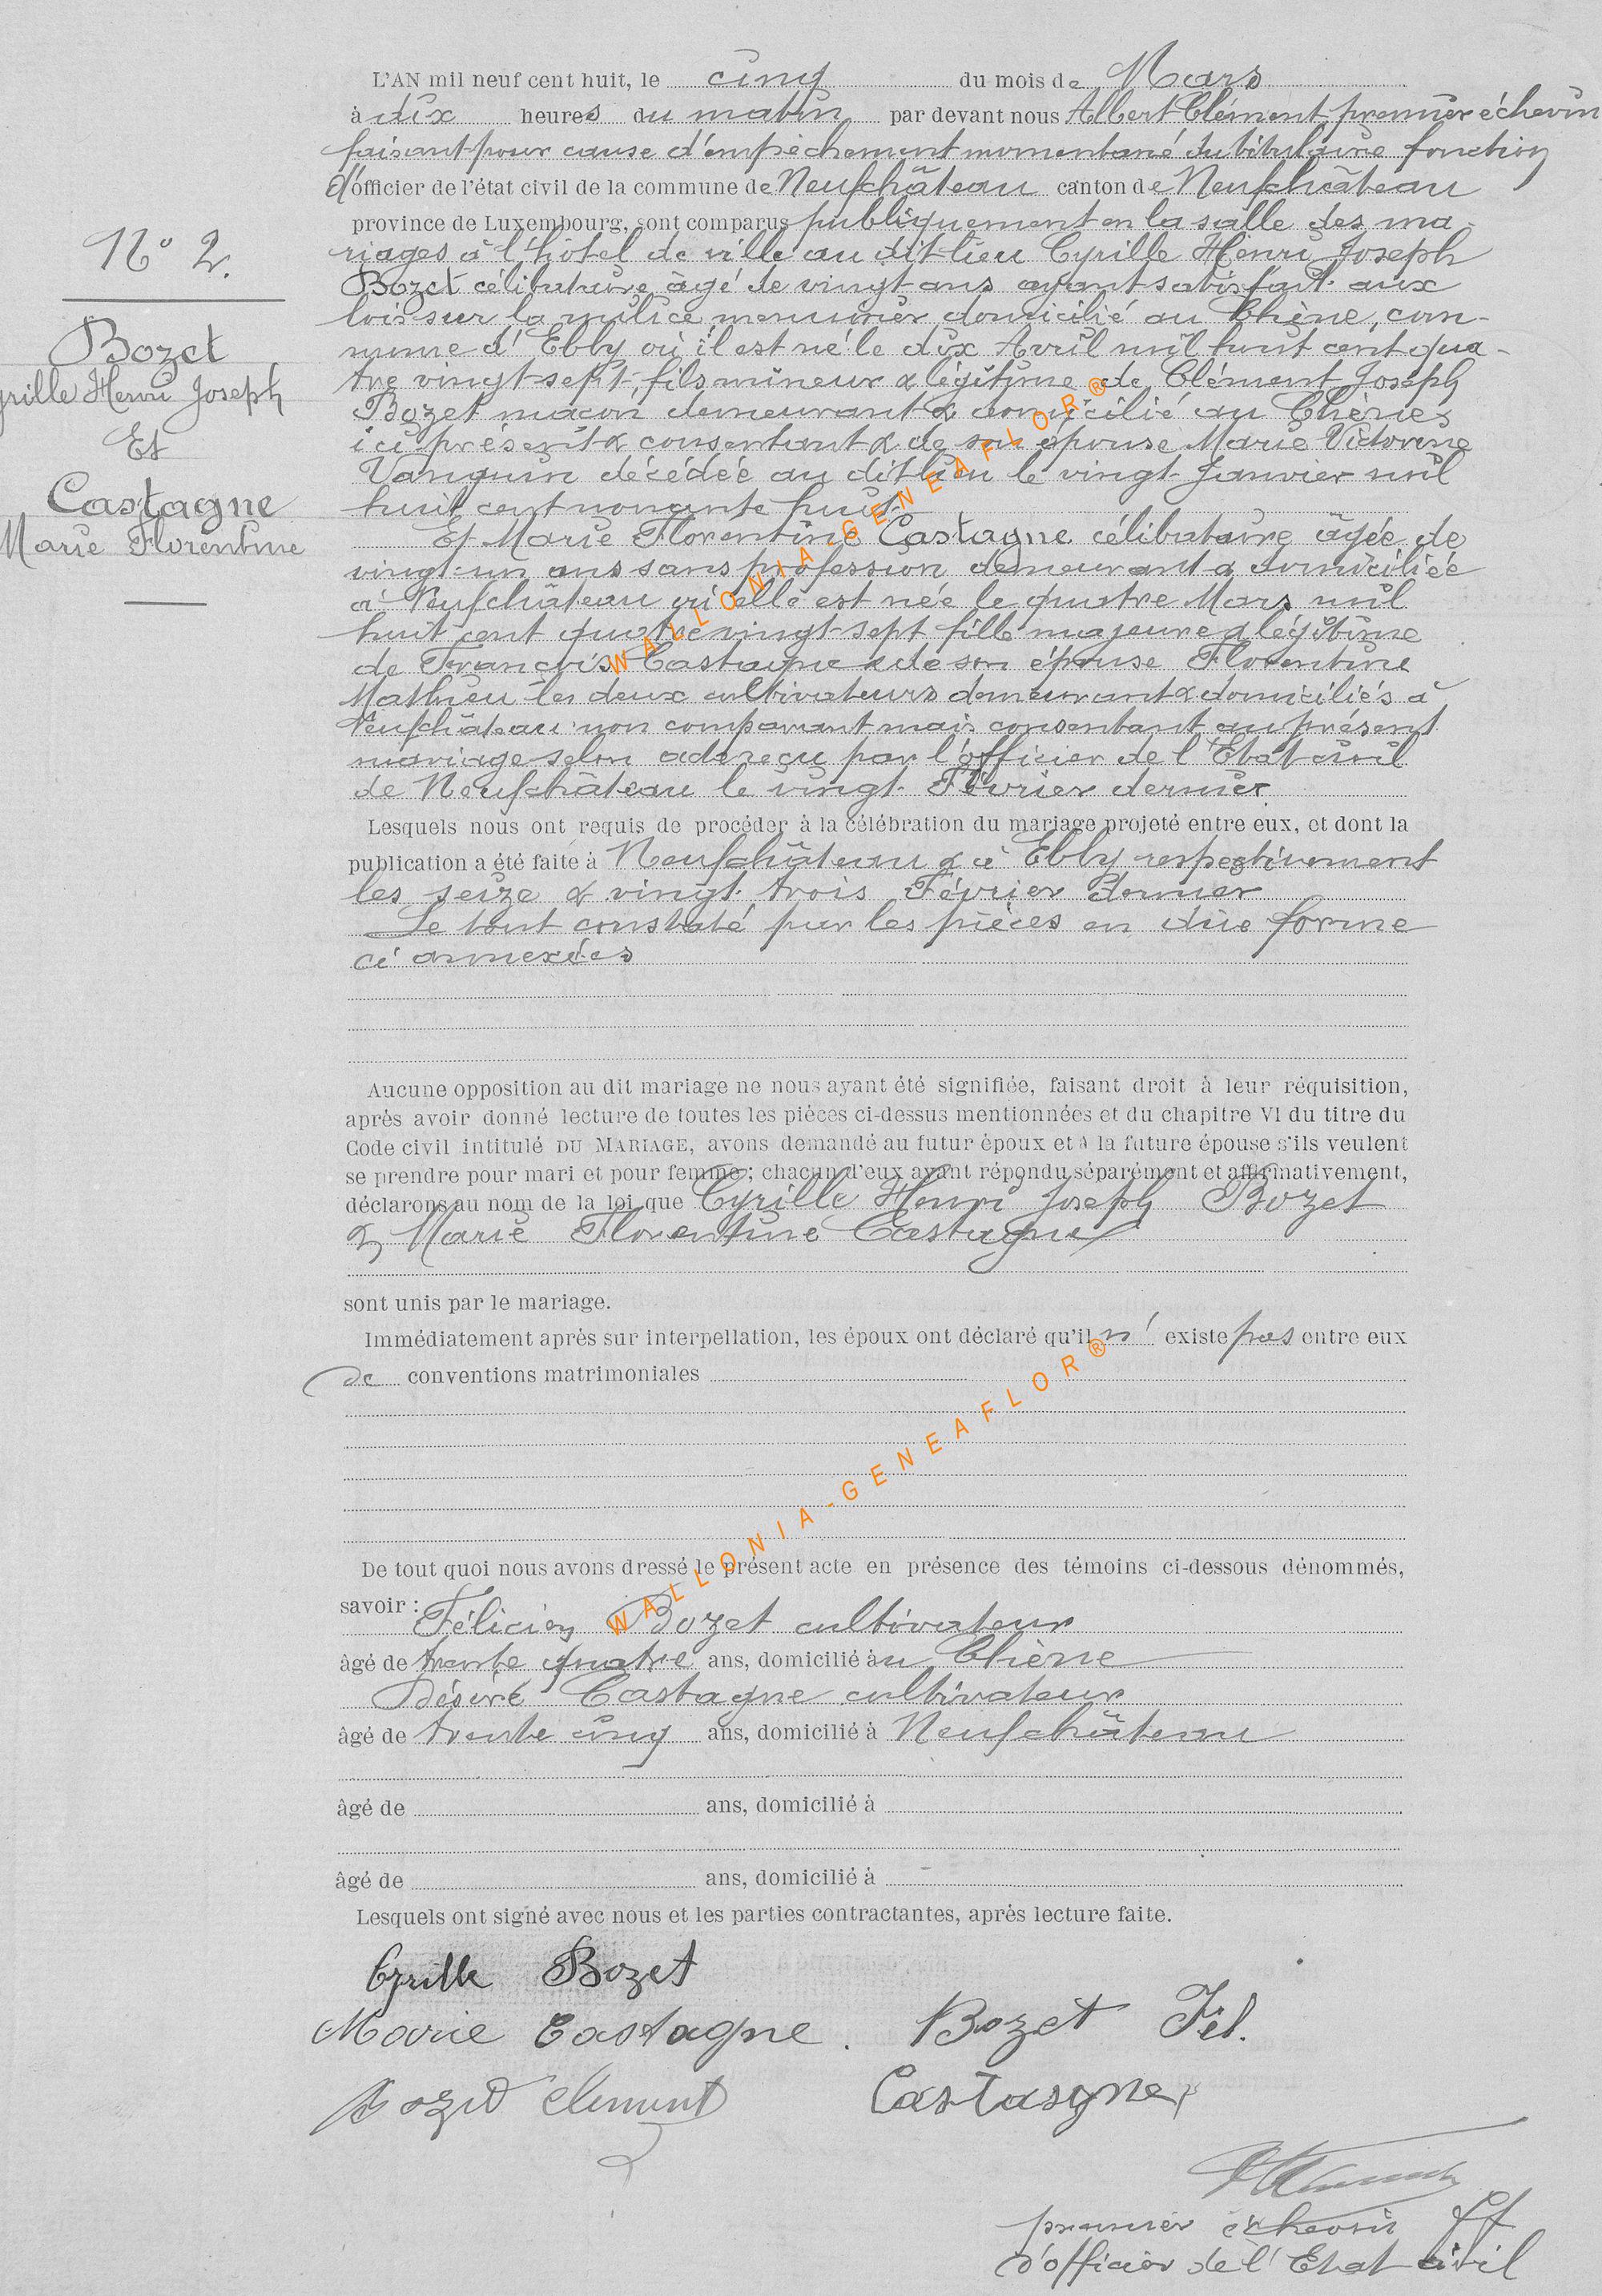 N° 2.
Bozet
Cyrille Henri Joseph
Et
Castagne
Marie Florentine
L'AN mil neuf cent huit, le cinq du mois de Mars
à dix heures du matin par devant nous Albert Clément premier échevin
faisant pour cause d'empêchement momentané du titulaire fonction
d'officier de l'état civil de la commune de Neufchâteau canton de Neufchâteau
province de Luxembourg, sont comparus publiquement en la salle des ma-
riages à l'hôtel de ville au dit lieu Cyrille Henri Joseph
Bozet célibataire âgé de vingt ans ayant satisfait aux
lois sur la milice menuisier domicilié au Chêne, com-
mune d'Ebly où il est né le dix Avril mil huit cent qua-
tre vingt-sept, fils mineur & légitime de Clément Joseph
Bozet maçon demeurant & domicilié au Chêne
ici présent & consentant & de son épouse Marie Victorine
Vanguin décédée au dit lieu le vingt Janvier mil
huit cent nonante huit
Et Marie Florentine Castagne célibataire âgée de
vingt-un ans sans profession, demeurant & domiciliée
à Neufchâteau où elle est née le quatre Mars mil
huit cent quatre vingt-sept fille majeure & légitime
de François Castagne & de son épouse Florentine
Mathieu les deux cultivateurs demeurant & domiciliés à
Neufchâteau non comparant mais consentant au présent
mariage selon acte reçu par l'officier de l'Etat civil
de Neufchâteau le vingt Février dernier
Lesquels nous ont requis de procéder à la célébration du mariage projeté entre eux, et dont la
publication a été faite à Neufchâteau & à Ebly respectivement
les seize & vingt trois Février dernier
Le tout constaté par les pièces en due forme
ci annexées
Aucune opposition au dit mariage ne nous ayant été signifiée, faisant droit à leur réquisition,
après avoir donné lecture de toutes les pièces ci-dessus mentionnées et du chapitre VI du titre du
Code civil intitulé DU MARIAGE, avons demandé au futur époux et à la future épouse s'ils veulent
se prendre pour mari et pour femme; chacun d'eux ayant répondu séparément et affirmativement,
déclarons au nom de la loi que Cyrille Henri Joseph Bozet
& Marie Florentine Castagne
sont unis par le mariage.
Immédiatement après sur interpellation, les époux ont déclaré qu'il n' existe pas entre eux
de conventions matrimoniales
De tout quoi nous avons dressé le présent acte en présence des témoins ci-dessous dénommés,
savoir : Félicien Bozet cultivateur
âgé de trente quatre ans, domicilié au Chêne
Désiré Castagne cultivateur
âgé de trente cinq ans, domicilié à Neufchâteau
âgé de ans, domicilié à
âgé de ans, domicilié à
Lesquels ont signé avec nous et les parties contractantes, après lecture faite.
Cyrille Bozet
Marie Castagne. Bozet Fél.
Bozet Clément Castasgne
premier échevin ff
d'officier de l'Etat civil
WALLONIA-GENEAFLOR®
WALLONIA-GENEAFLOR®